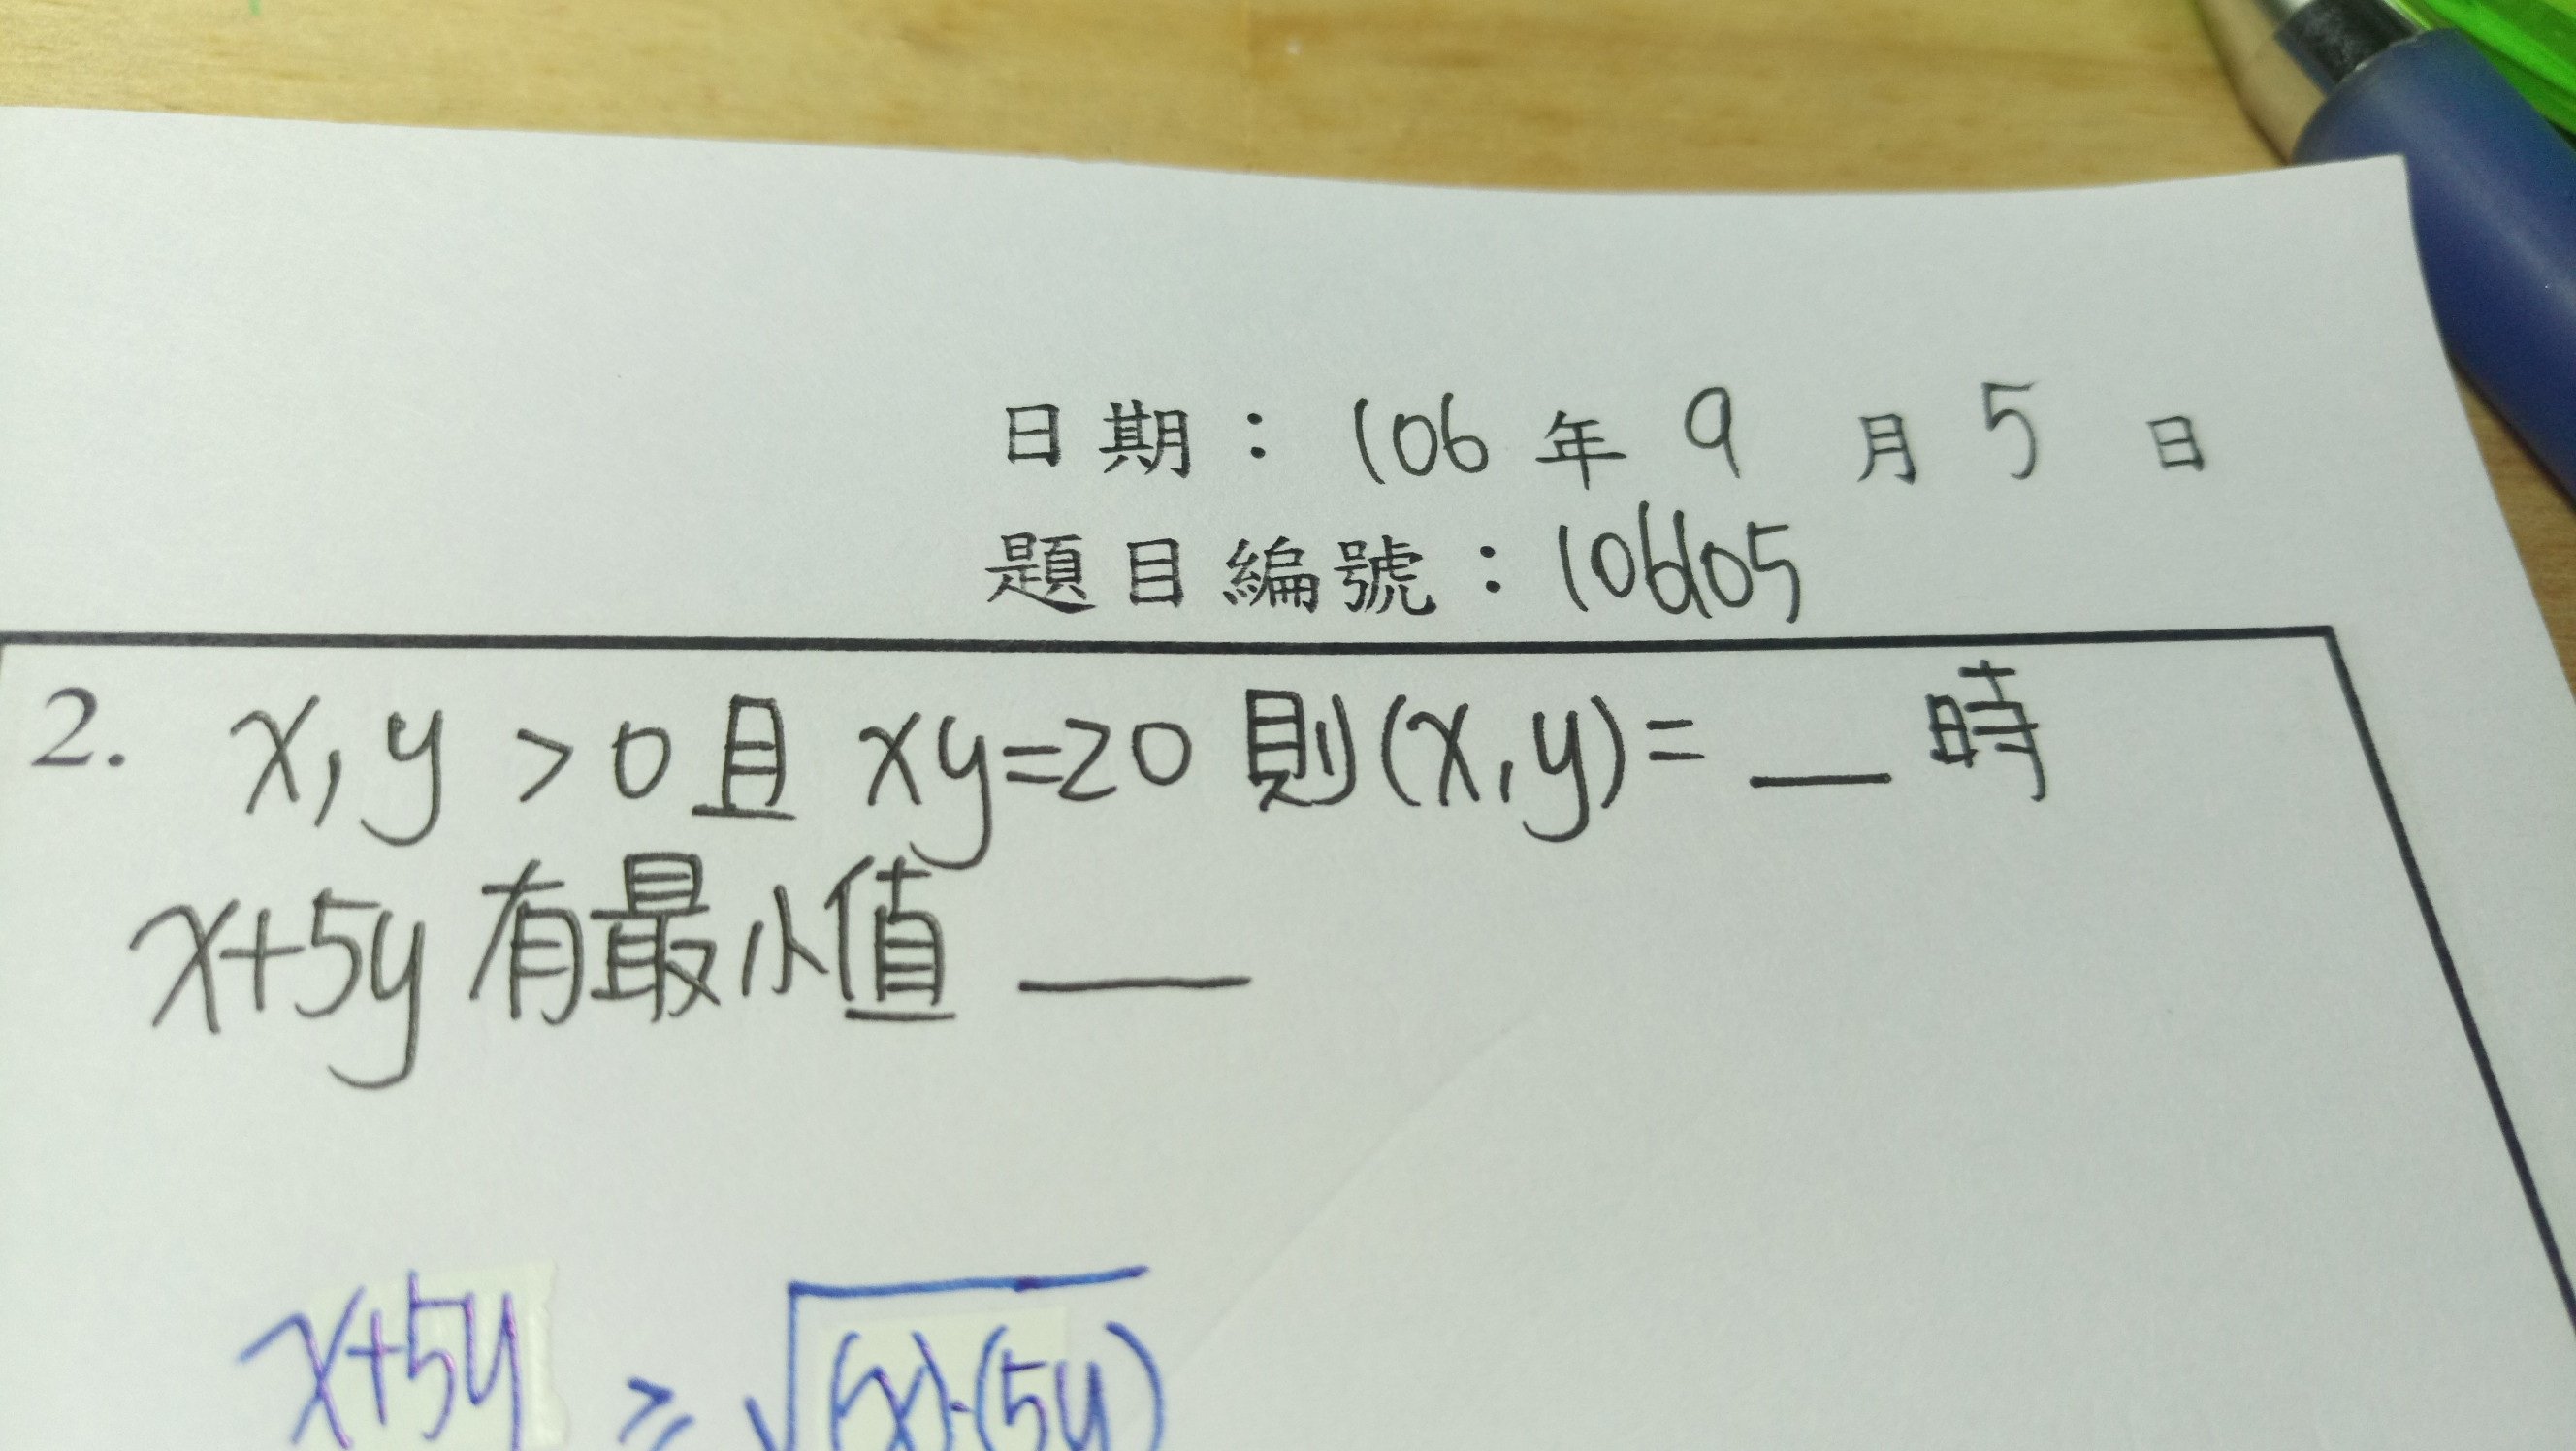 日期：106年9月5日
題目編號：106105
2. x,y >0 且 xy=20 則(x,y)= __ 時
x+5y 有最小值 ____
x+5y ≥ √(x)·(5y)